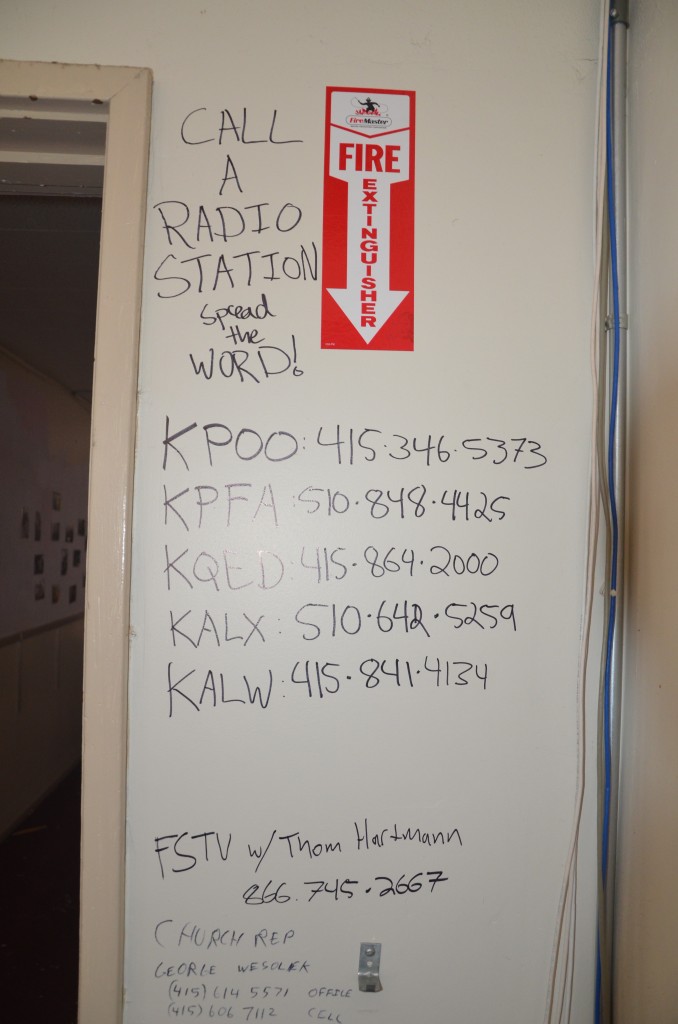 CALL
A
RADIO
STATION
spread
the
WORD!
FireMaster
FIRE
EXTINGUISHER
KPOO: 415·346·5373
KPFA: 510·848·4425
KQED: 415·864·2000
KALX: 510·642·5259
KALW: 415·841·4134
FSTV w/ Thom Hartmann
866.745·2667
CHURCH REP
GEORGE WESOLEK
(415) 614 5571 OFFICE
(415) 606 7112 CELL